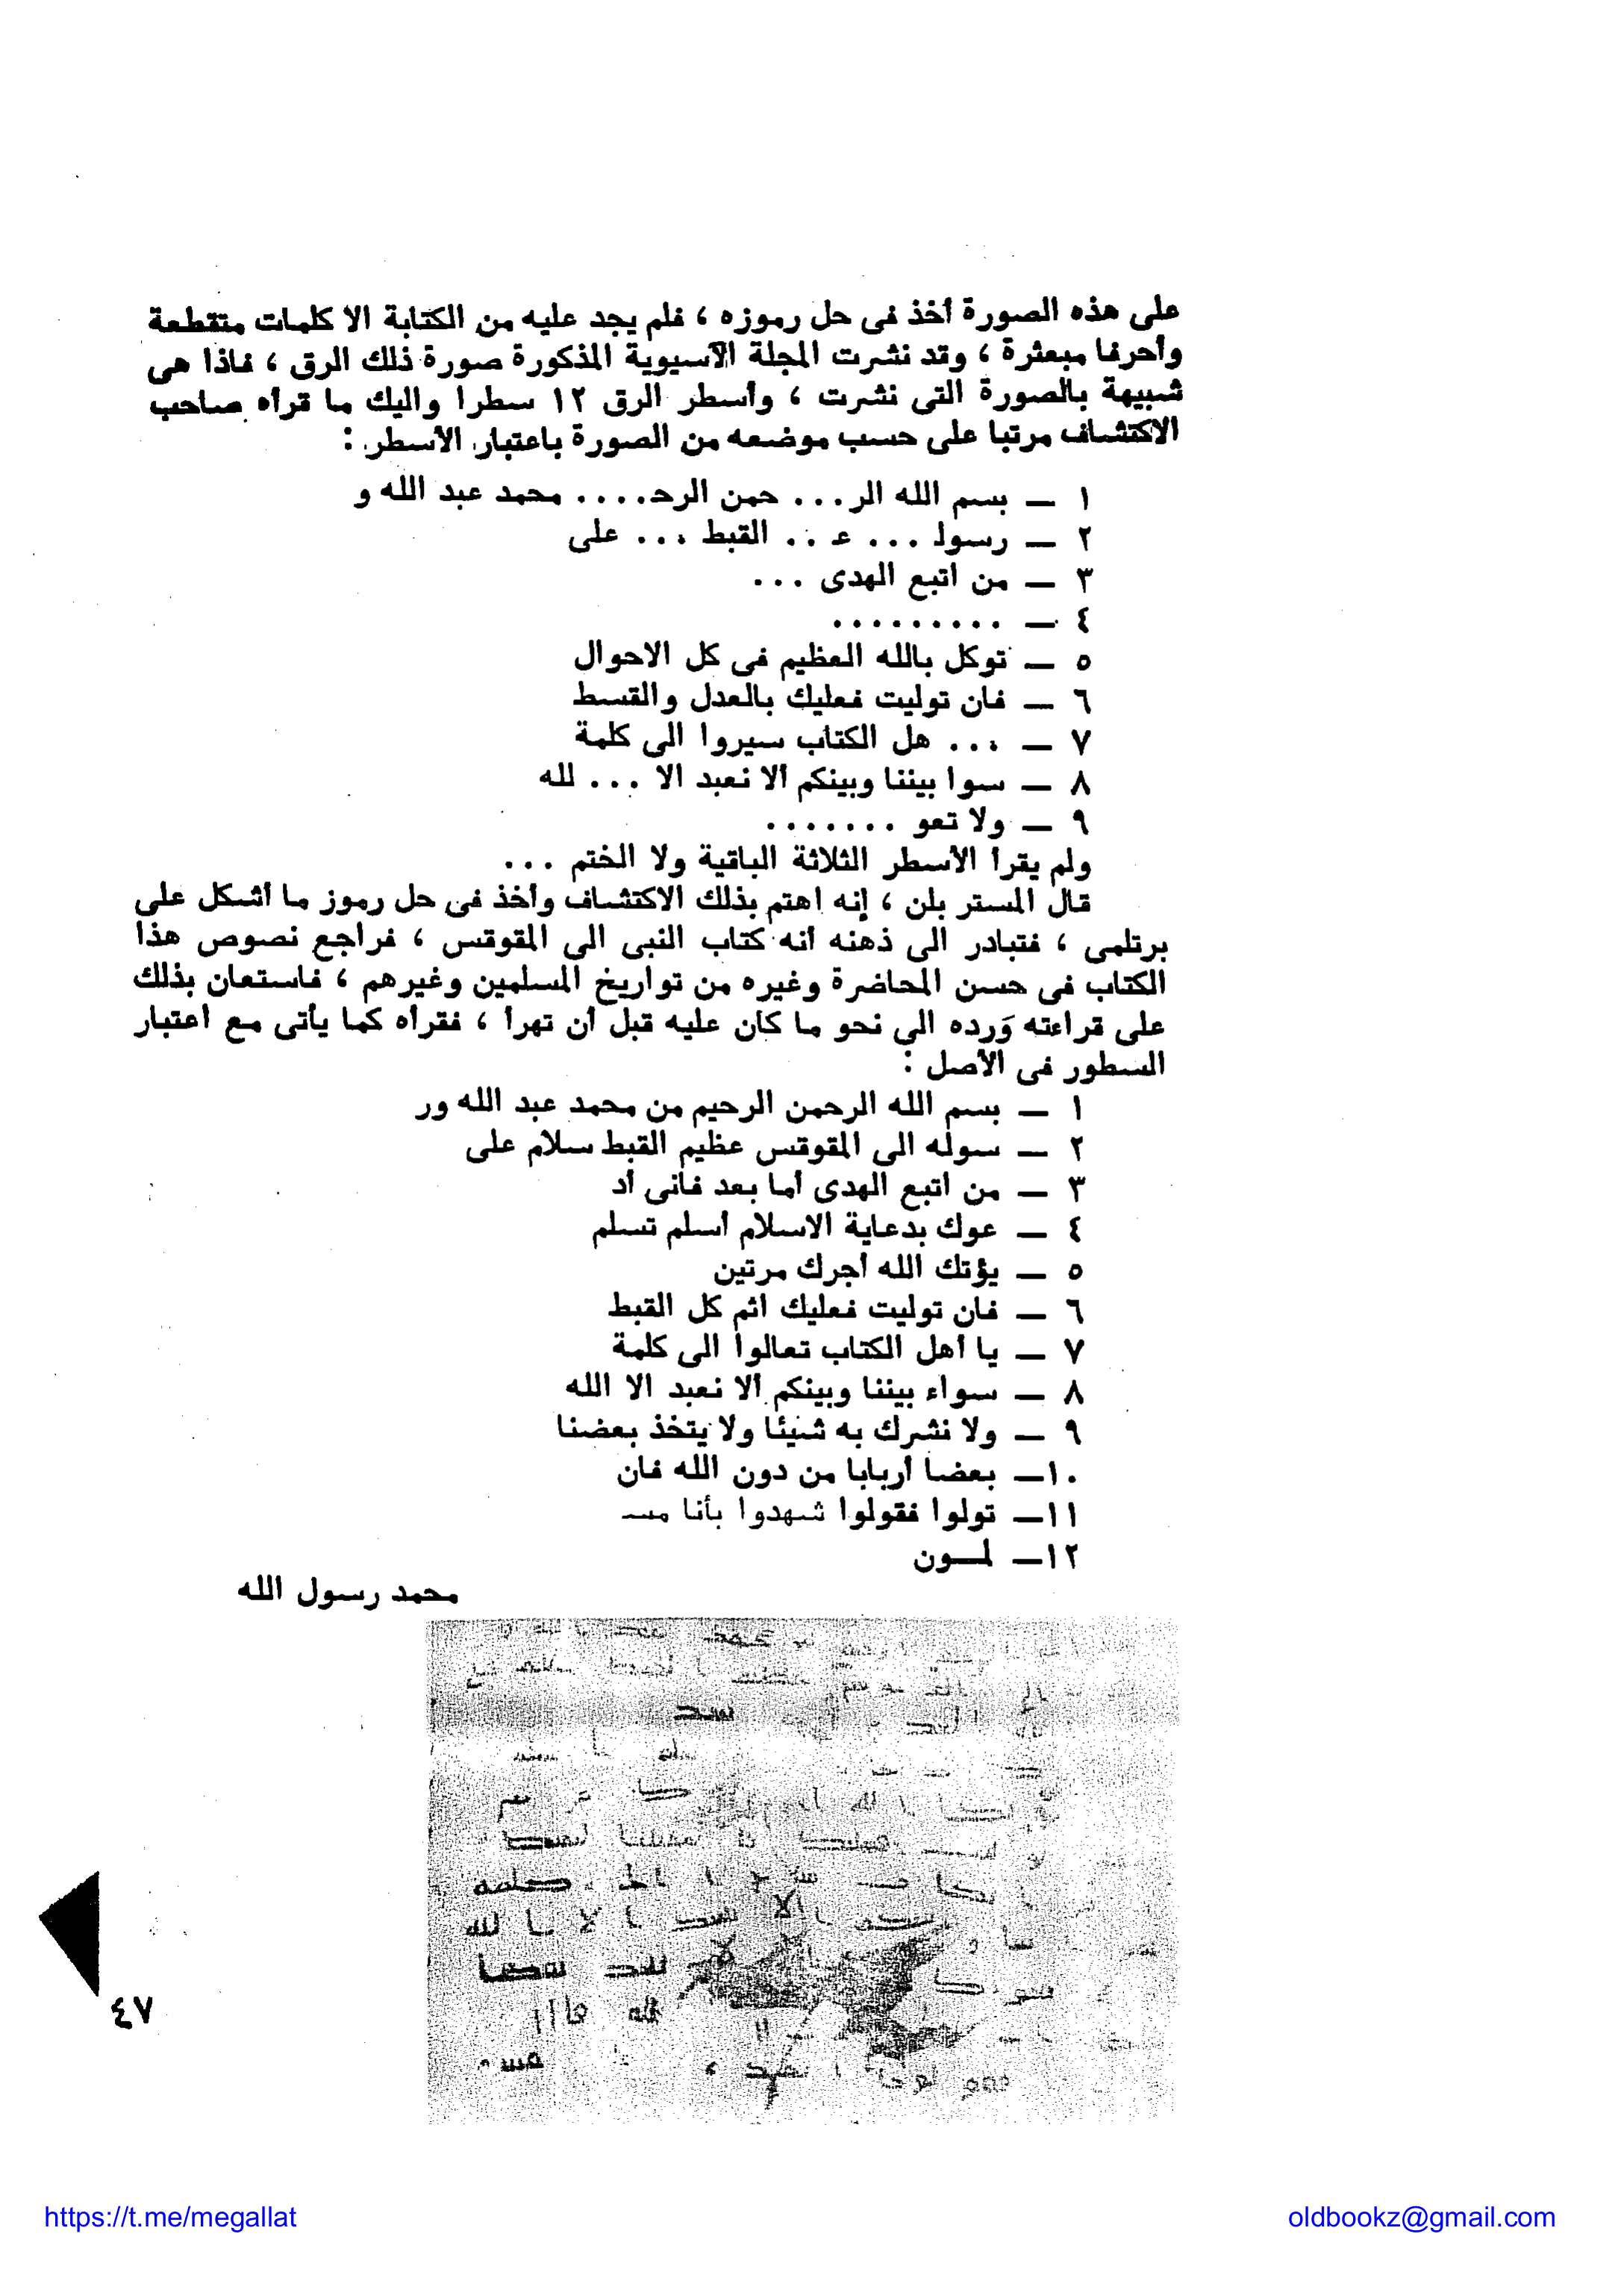 على هذه الصورة أخذ فى حل رموزه ، فلم يجد عليه من الكتابة الا كلمات متقطعة
وأحرفا مبعثرة ، وقد نشرت المجلة الآسيوية المذكورة صورة ذلك الرق ، فاذا هى
شبيهة بالصورة التى نشرت ، وأسطر الرق ١٢ سطرا واليك ما قرأه صاحب
الاكتشاف مرتبا على حسب موضعه من الصورة باعتبار الأسطر :
١ — بسم الله الر... حمن الرحـ.... محمد عبد الله و
٢ — رسولـ ... عـ .. القبط ... على
٣ — من اتبع الهدى ...
٤ — .........
٥ — توكل بالله العظيم فى كل الاحوال
٦ — فان توليت فعليك بالعدل والقسط
٧ — ... هل الكتاب سيروا الى كلمة
٨ — سوا بيننا وبينكم ألا نعبد الا ... لله
٩ — ولا تعو .......
ولم يقرأ الأسطر الثلاثة الباقية ولا الختم ...
قال المستر بلن ، إنه اهتم بذلك الاكتشاف وأخذ فى حل رموز ما أشكل على
برتلمى ، فتبادر الى ذهنه أنه كتاب النبى الى المقوقس ، فراجع نصوص هذا
الكتاب فى حسن المحاضرة وغيره من تواريخ المسلمين وغيرهم ، فاستعان بذلك
على قراءته وَرده الى نحو ما كان عليه قبل أن تهرأ ، فقرأه كما يأتى مع اعتبار
السطور فى الأصل :
١ — بسم الله الرحمن الرحيم من محمد عبد الله ور
٢ — سوله الى المقوقس عظيم القبط سلام على
٣ — من اتبع الهدى أما بعد فانى أد
٤ — عوك بدعاية الاسلام أسلم تسلم
٥ — يؤتك الله أجرك مرتين
٦ — فان توليت فعليك اثم كل القبط
٧ — يا أهل الكتاب تعالوا الى كلمة
٨ — سواء بيننا وبينكم ألا نعبد الا الله
٩ — ولا نشرك به شيئا ولا يتخذ بعضنا
١٠— بعضا أربابا من دون الله فان
١١— تولوا فقولوا شهدوا بأنا مسـ
١٢— لمـون
محمد رسول الله
٤٧
https://t.me/megallat
oldbookz@gmail.com